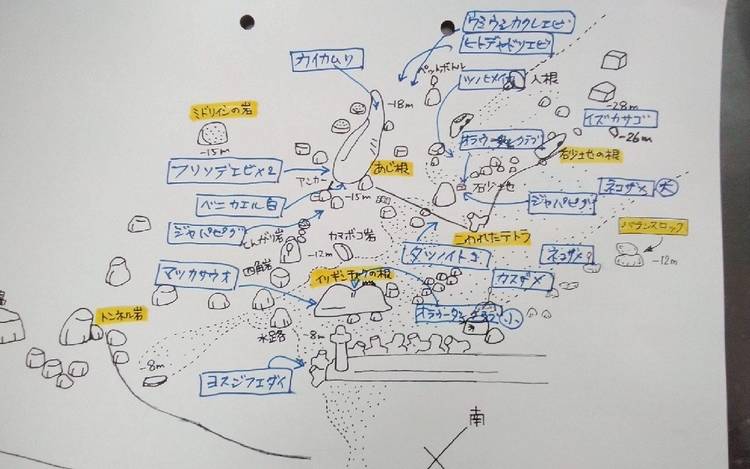 ウミウシカクレエビ
ヒトデヤドリエビ
カイカムリ
ペットボトル
ツノヒメイカ
人根
-18m
ミドリイシの岩
-15m
-28m
イズカサゴ
-26m
砂地の根
フリソデエビ×2
アンカー
あじ根
砂地
ネコザメ 大
ベニカエル白
-15m
ジャパピグ
ジャパピグ
とんがり岩
カマボコ岩
こわれたテトラ
バランスロック
-12m
四角岩
-12m
タツノイトコ
ネコザメ
マツカサウオ
イソギンチャクの根
カスザメ
トンネル岩
小
水路
-8m
-8m
ヨスジフエダイ
南